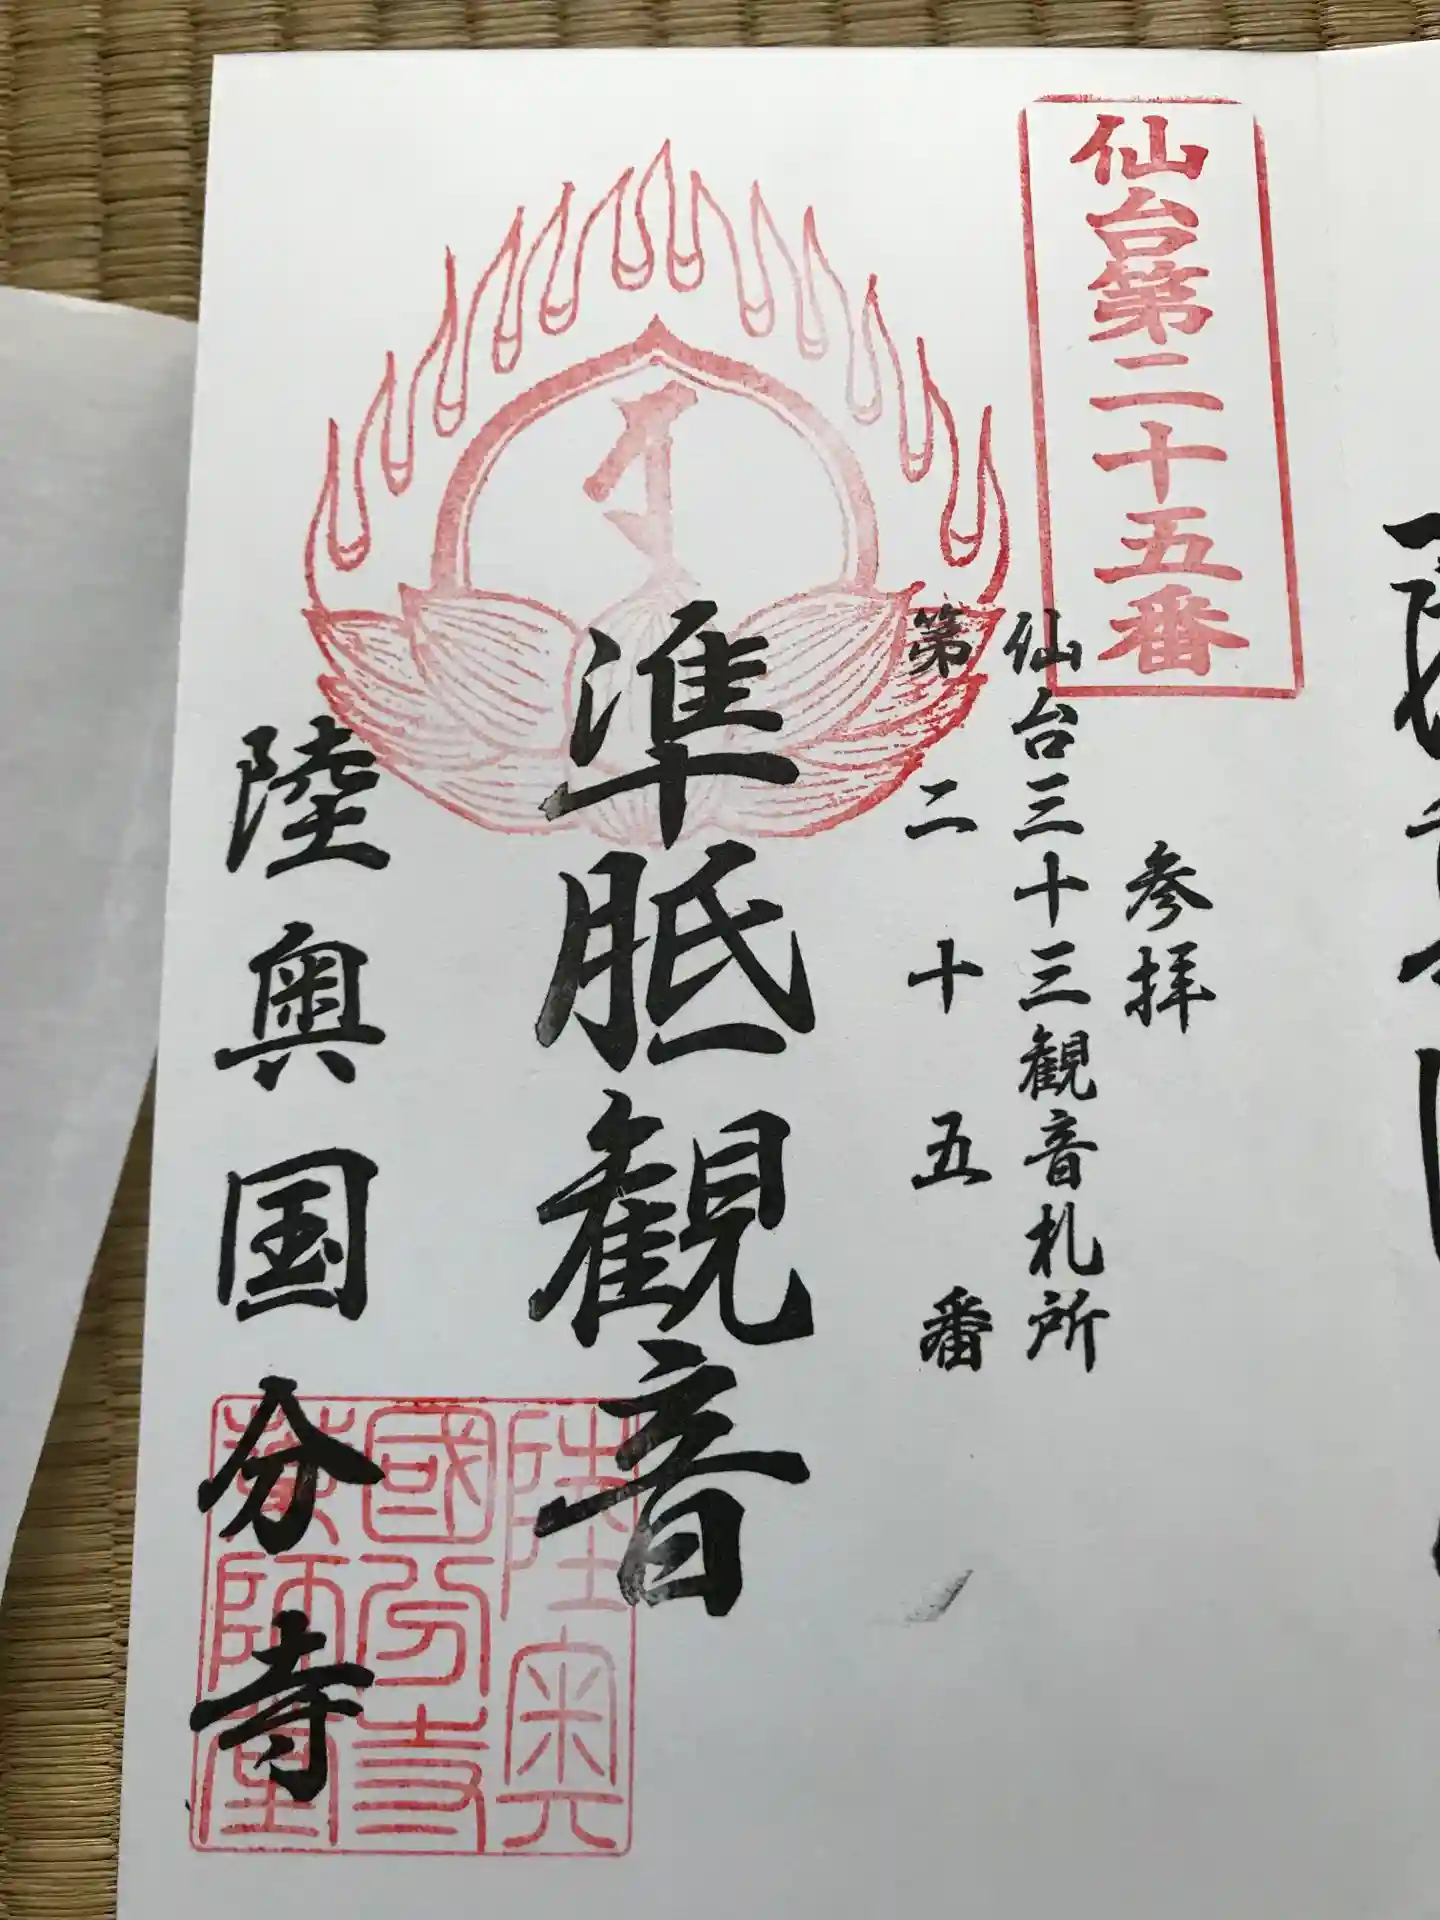 仙台第二十五番
参拝
仙台三十三観音札所
第二十五番
准胝観音
陸奥国分寺
陸奥
國分寺
薬師堂